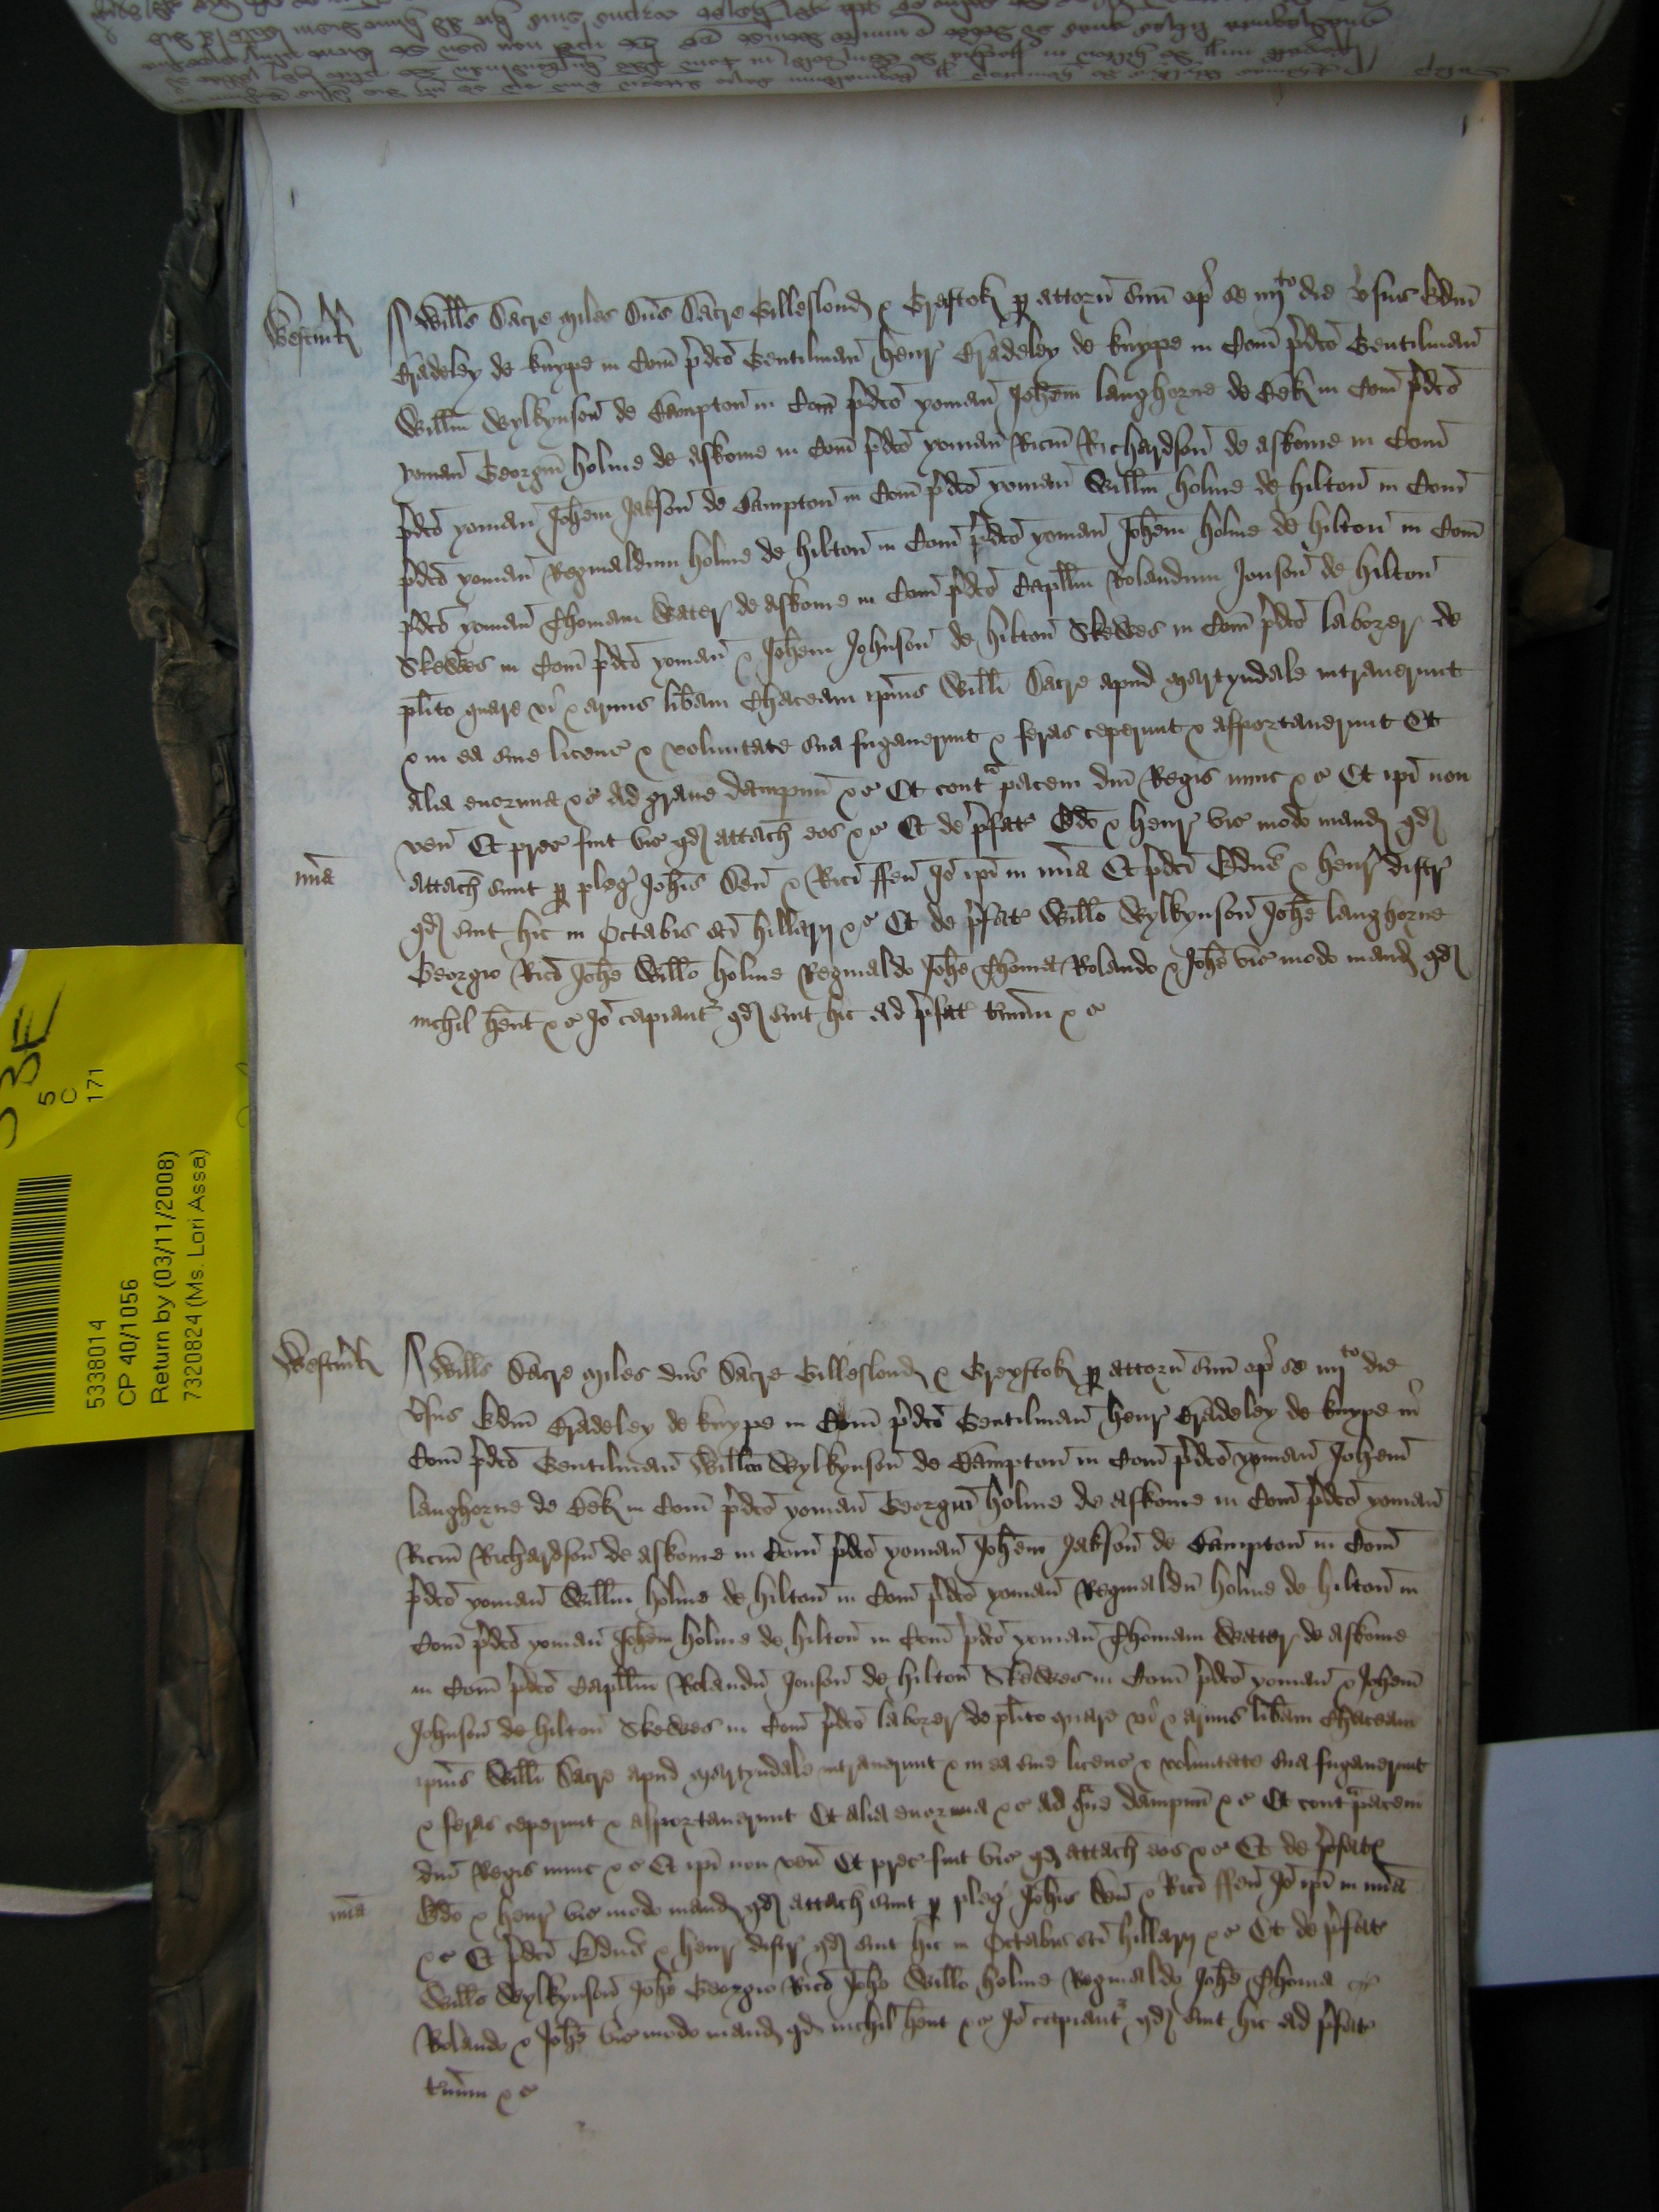 Westmerl
Willms Dacre miles Dns Dacre Gilleslond & Graistok p attorn suu op se iiijto die vsus Edm
Bradeley de knype in Com pdco Gentilman henr Bradeley de knype in Com pdco Gentilman
Willm Wylkynson de Bampton in Com pdco yoman Johem langhorne de Bek in Com pdco
yoman Georgiu holme de askome in Com pdco yoman Ricm Richardson de askome in Com
pdco yoman Johem Jakson de Bampton in Com pdco yoman Willm holme de hilton in Com
pdco yoman Reginaldum holme de hilton in Com pdco yoman Johem holme de hilton in Com
pdco yoman Thomam Water de askome in Com pdco Capllm Rolandum Jonson de hilton
Skewes in Com pdco yoman & Johem Johnson de hilton Skewes in Com pdco laborer de
plito quare vi & armis libam Chaceam ipius Willi Dacre apud Martyndale intrauerunt
& in ea sine licenc & voluntate sua fugauerunt & feras ceperunt & asportauerunt Et
alia enormia &c Ad graue dampnu &c Et contra pacem dni Regis nunc &c Et ipi non
ven Et prec fuit vic qd attach eos &c Et de pfat Edo & henr vic modo mand qd
mia
attach sunt p pleg Johis Den & Rici ffen Jo ipi in mia Et pdci Edmus & henr distr
qd sint hic in Octabis sci hillarij &c Et de pfat Willo Wylkynson Johe langhorne
Georgio Rico Johe Willo holme Reginaldo Johe Thoma Rolando & Johe vic modo mand qd
nichil hent &c Jo capiant qd sint hic ad pfat tminu &c
Westmerl
Willms Dacre miles dns Dacre Gilleslond & Greystok p attorn suu op se iiijto die
vsus Edm Bradeley de knype in Com pdco Gentilman henr Bradeley de knype in
Com pdco Gentilman Willm Wylkynson de Bampton in Com pdco yoman Johem
langhorne de Bek in Com pdco yoman Georgiu holme de askome in Com pdco yoman
Ricm Richardson de askome in Com pdco yoman Johem Jakson de Bampton in Com
pdco yoman Willm holme de hilton in Com pdco yoman Reginaldu holme de hilton in
Com pdco yoman Johem holme de hilton in Com pdco yoman Thomam Water de askome
in Com pdco Capllm Rolandu Jonson de hilton Skewes in Com pdco yoman & Johem
Johnson de hilton Skewes in Com pdco laborer de plito quare vi & armis libam Chaceam
ipius Willi Dacre apud Martyndale intrauerunt & in ea sine licenc & voluntate sua fugauerunt
& feras ceperunt & asportauerunt Et alia enormia &c ad graue dampnu &c Et contra pacem
dni Regis nunc &c Et ipi non ven Et prec fuit vic qd attach eos &c Et de pfat
mia
Edo & henr vic modo mand qd attach sunt p pleg Johis Den & Rici ffen Jo ipi in mia
&c Et pdci Edmus & henr distr qd sint hic in Octabis sci hillarij &c Et de pfat
Willo Wylkynson Johe Georgio Rico Johe Willo holme Reginaldo Johe Thoma
Rolando & Johe vic modo mand qd nichil hent &c Jo capiant qd sint hic ad pfat
tminu &c
5
C
171
5338014
CP 40/1056
Return by (03/11/2008)
7320824 (Ms. Lori Assa)